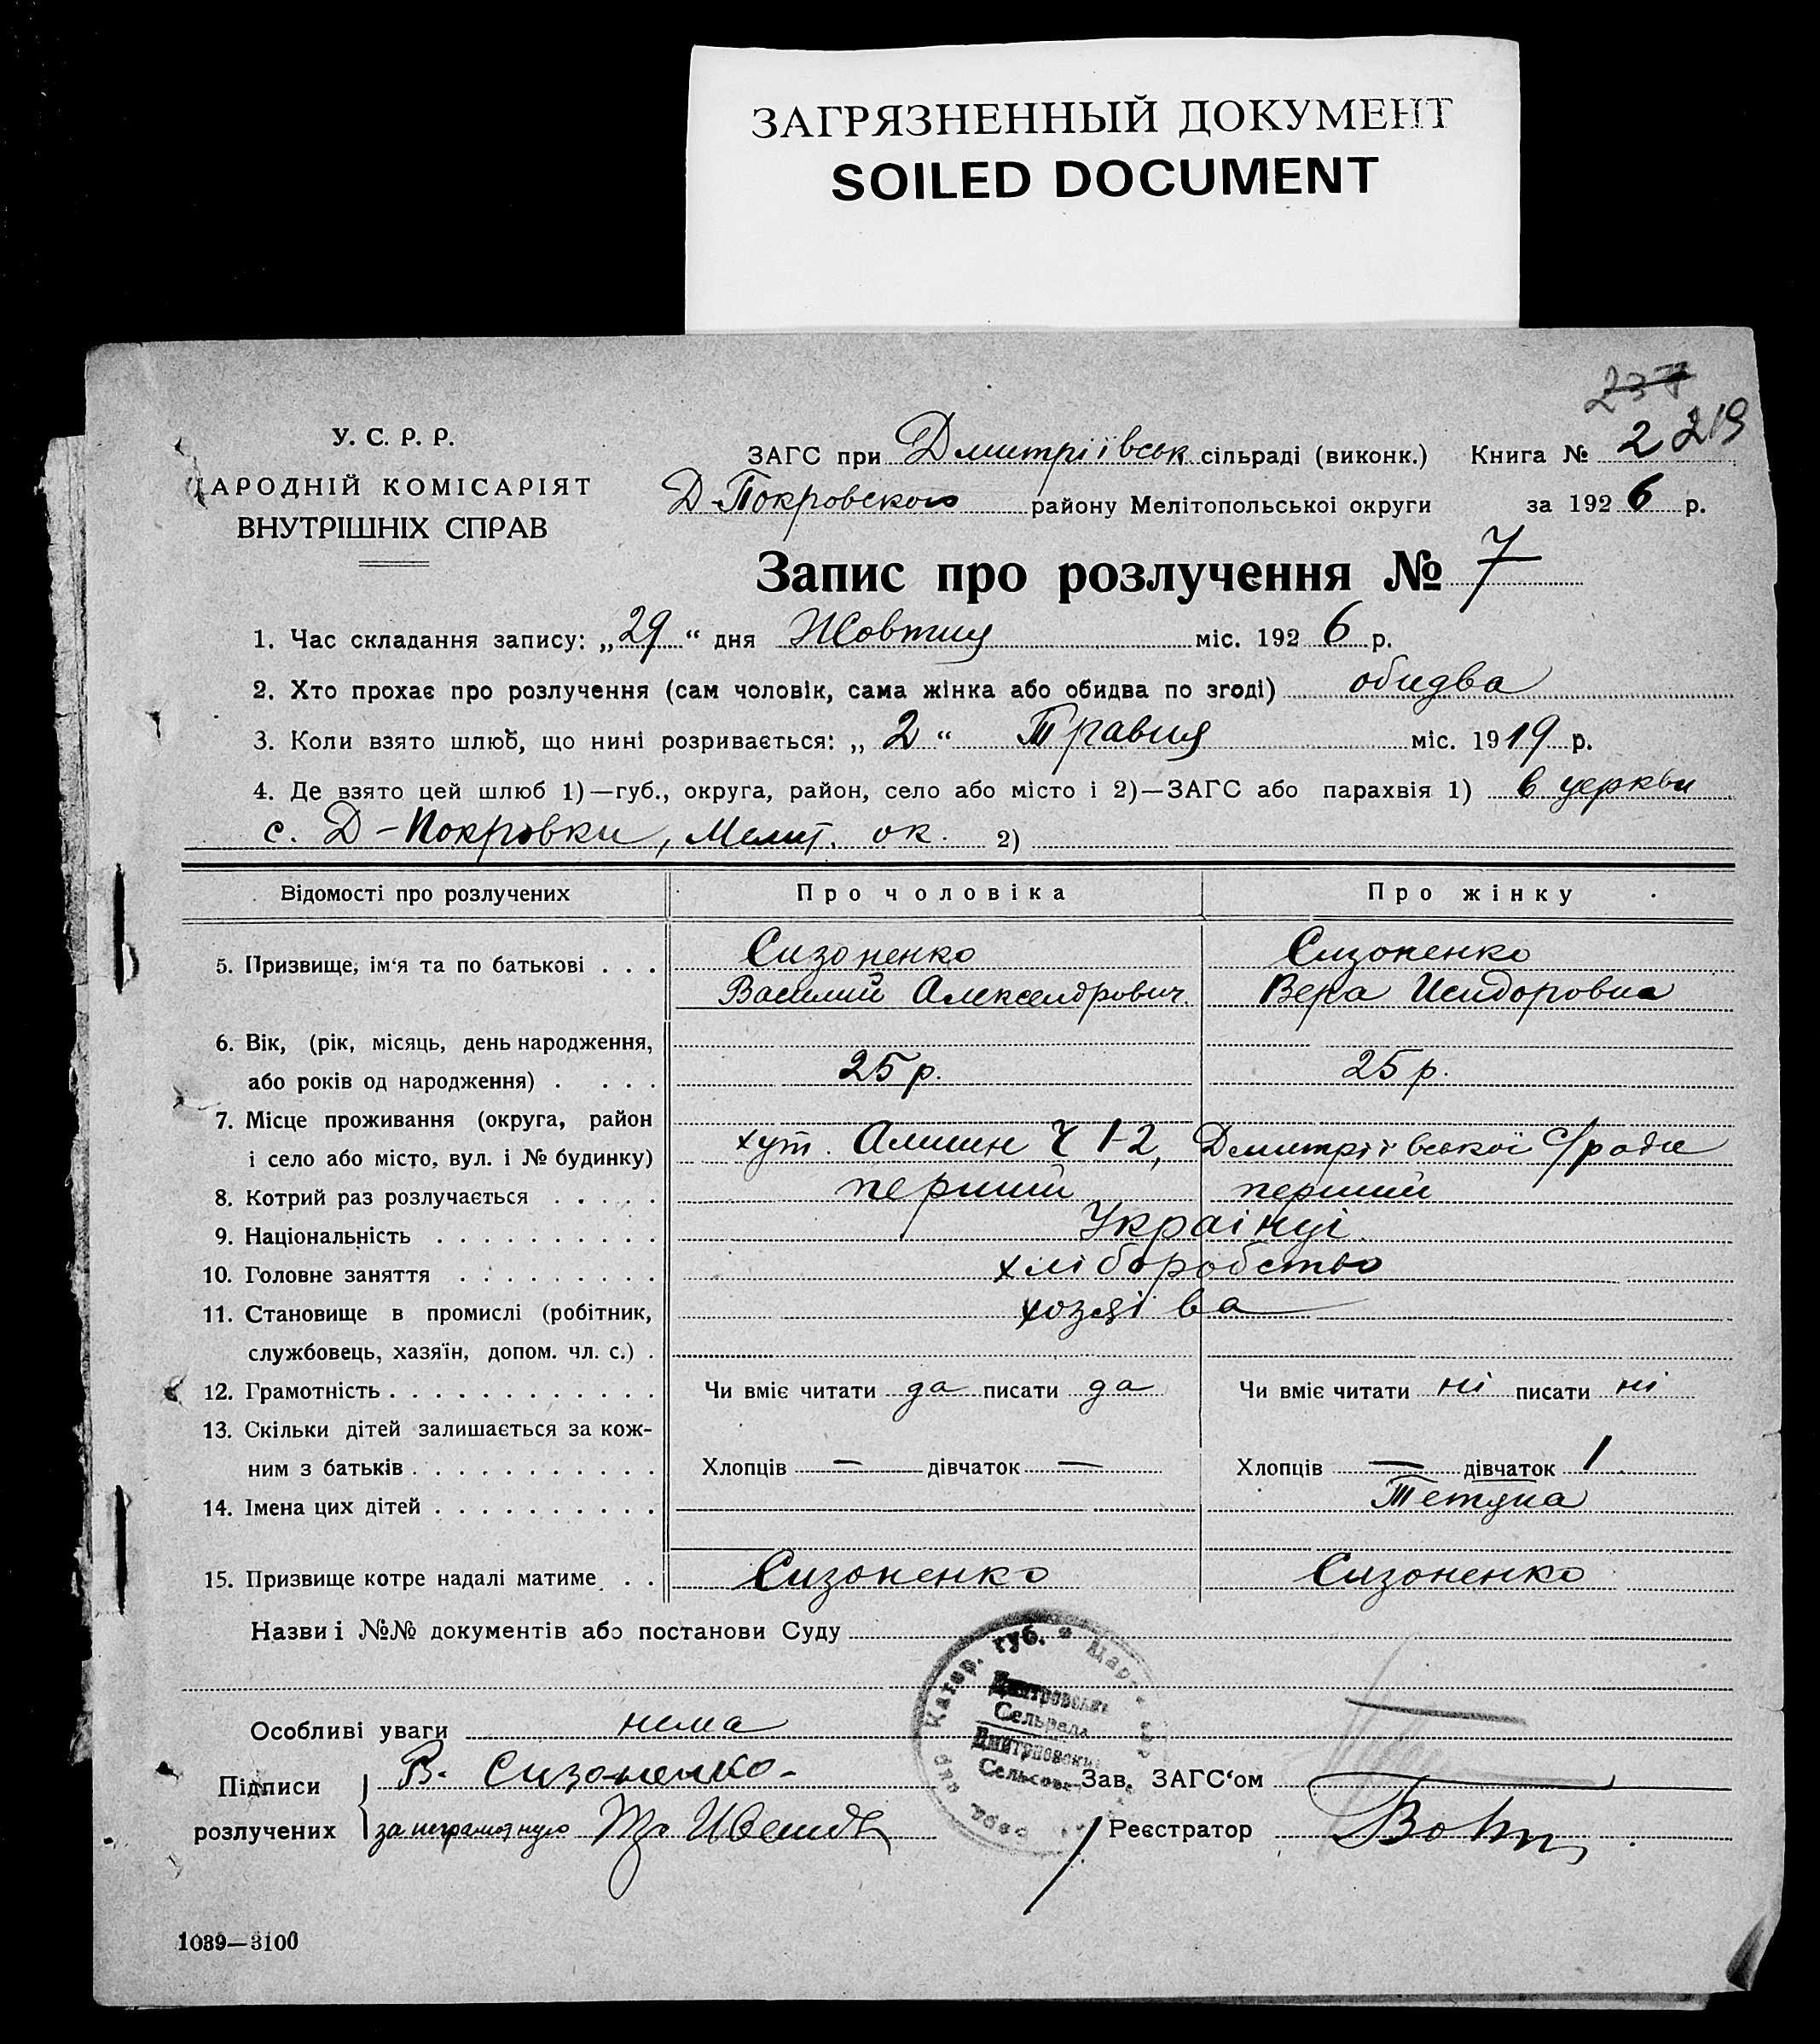 ЗАГРЯЗНЕННЫЙ ДОКУМЕНТ
SOILED DOCUMENT
237
219
У. С. Р. Р.
НАРОДНІЙ КОМІСАРІЯТ
ВНУТРІШНІХ СПРАВ
ЗАГС при Дмитріївськ. сільраді (виконк.) Книга № 2
Д-Покровского району Мелітопольської округи за 1926 р.
Запис про розлучення № 7
1. Час складання запису: „29“ дня Жовтня міс. 1926 р.
2. Хто прохає про розлучення (сам чоловік, сама жінка або обидва по згоді) обидва
3. Коли взято шлюб, що нині розривається: „2“ Травня міс. 1919 р.
4. Де взято цей шлюб 1)—губ., округа, район, село або місто і 2)—ЗАГС або парахвія 1) в церкви
с. Д-Покровки, Мелит. ок. 2)
Відомості про розлучених Про чоловіка Про жінку
5. Призвище, ім‘я та по батькові . . . Сизоненко Сизоненко
Василий Александрович. Вера Исидоровна
6. Вік, (рік, місяць, день народження,
або років од народження) . . . . 25 р. 25 р.
7. Місце проживання (округа, район
і село або місто, вул. і № будинку) хут. Алишин Ч 1-2, Дмитріївської с/ради
8. Котрий раз розлучається . . . . . перший перший
9. Національність . . . . . . . . . . Українці
10. Головне заняття . . . . . . . . . хліборобство
11. Становище в промислі (робітник, хозяїва
службовець, хазяїн, допом. чл. с.) .
12. Грамотність . . . . . . . . . . . . Чи вміє читати да писати да Чи вміє читати ні писати ні
13. Скільки дітей залишається за кож-
ним з батьків . . . . . . . . . . . Хлопців — дівчаток — Хлопців — дівчаток 1
14. Імена цих дітей . . . . . . . . . . Тетяна
15. Призвище котре надалі матиме . . Сизоненко Сизоненко
Назви і №№ документів або постанови Суду
Катер. губ.
Дмитровська
Сельрада
Дмитриовский
Сельсовет
Особливі уваги нема
Підписи В. Сизоненко Зав. ЗАГС‘ом
розлучених за неграмотную Реєстратор
1039—3100